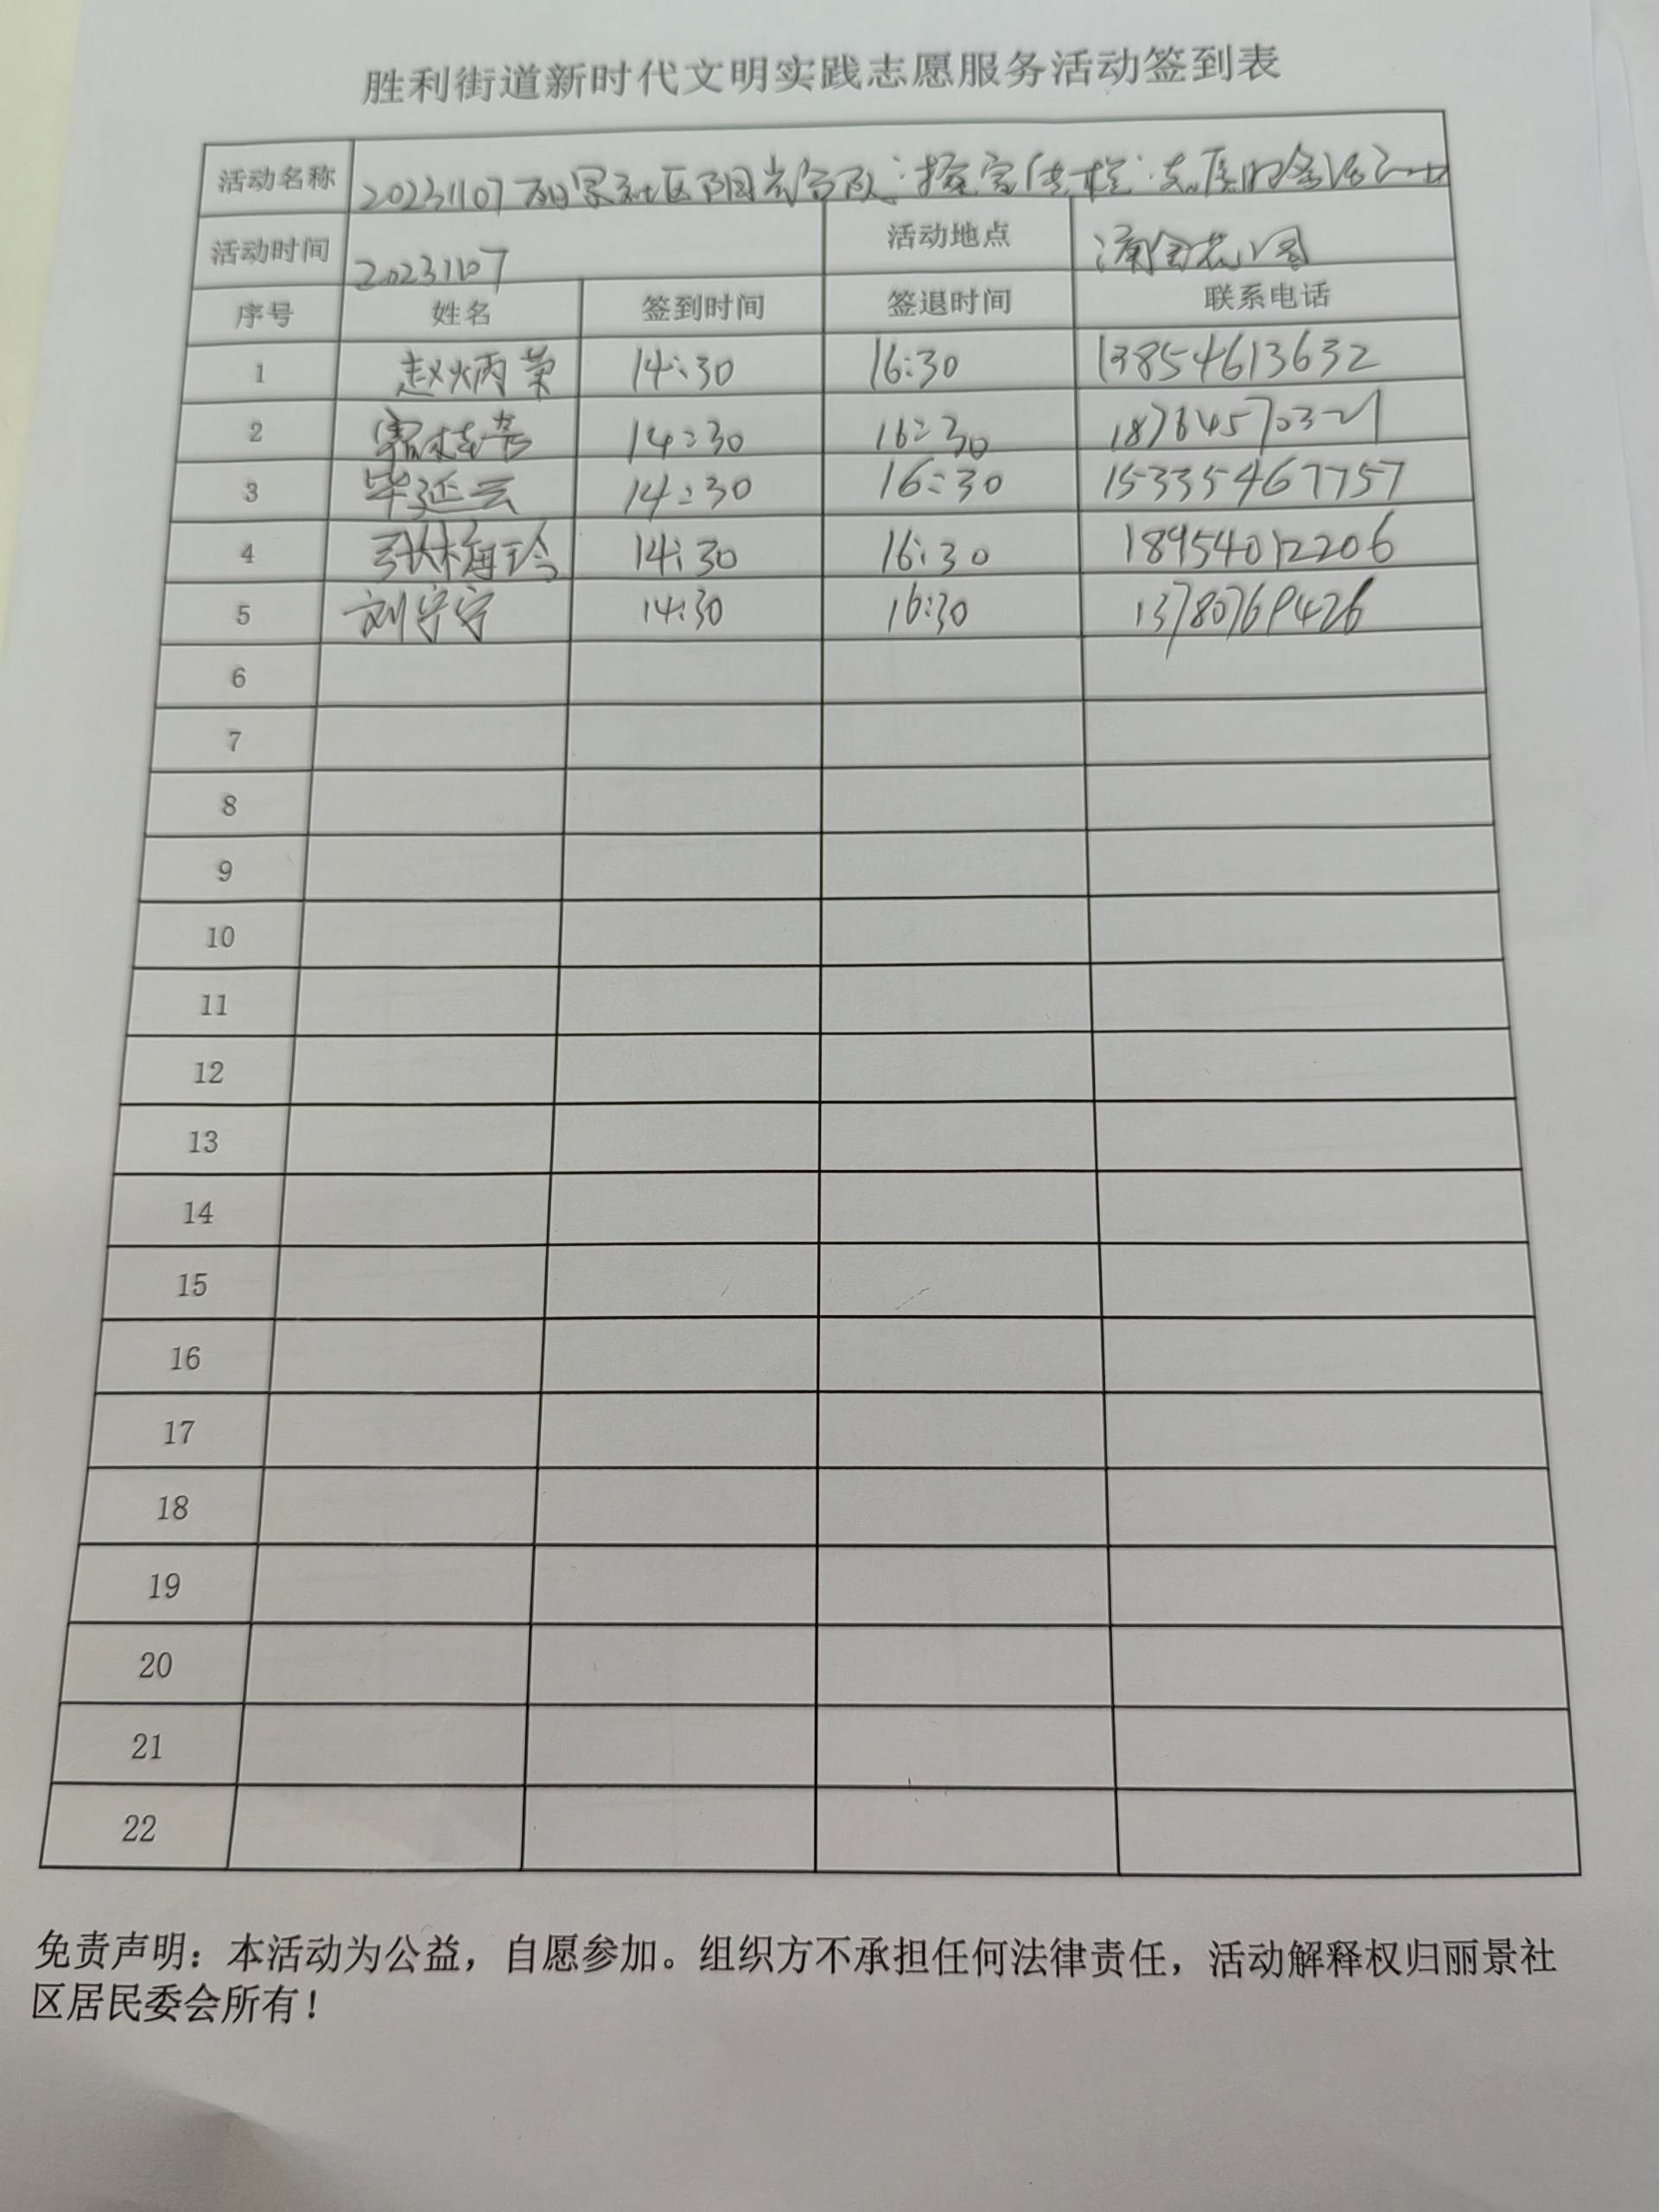 胜利街道新时代文明实践志愿服务活动签到表
活动名称 20231107丽景社区阳光 宣传栏 志愿服务活动
活动时间 20231107 活动地点 花园
序号 姓名 签到时间 签退时间 联系电话
1 赵炳荣 14:30 16:30 13854613632
2 14:30 16:30 18764570321
3 毕延云 14:30 16:30 15335467757
4 张梅玲 14:30 16:30 18954012206
5 刘宁宁 14:30 16:30 13780769426
6
7
8
9
10
11
12
13
14
15
16
17
18
19
20
21
22
免责声明：本活动为公益，自愿参加。组织方不承担任何法律责任，活动解释权归丽景社
区居民委会所有！